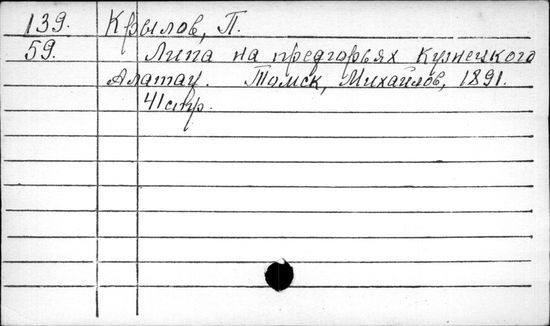 139. Крылов, П.
59. Липа на предгорьях Кузнецкого
Алатау. Томск, Михайлов, 1891.
41стр.